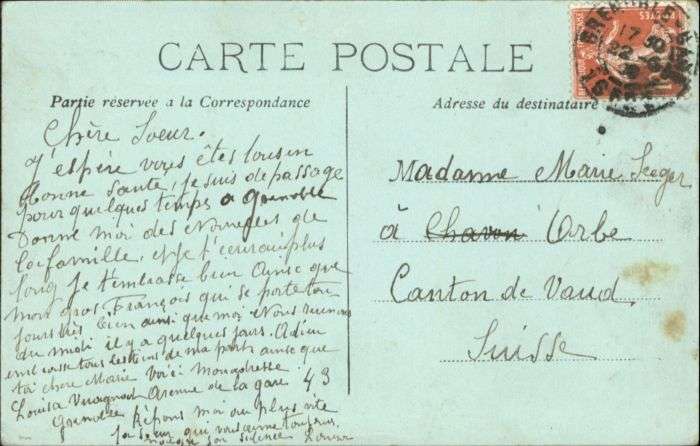 CARTE POSTALE
Partie réservée à la Correspondance
Adresse du destinataire
Chère Soeur.
J'espère vous êtes tous en
bonne santé, je suis de passage
pour quelques temps a Grenoble
Donne moi des Nouvelles de
la famille, Je t'écrirai plus
long je t'embrasse bien ainsi que
mon gros François qui se porte tou
jours très bien ainsi que moi Nous
du midi il y a quelques jours. Adieu
embrasse tous de ma part ainsi que
ta chère Marie voici mon adresse
Louisa Avenue de la gare 43
Grenoble Répons moi au plus vite
ta soeur qui vous aime toujours
malgré son silence Louisa
Madame Marie Seeger
à Chavon Orbe
Canton de Vaud
Suisse
17 30
22 -6